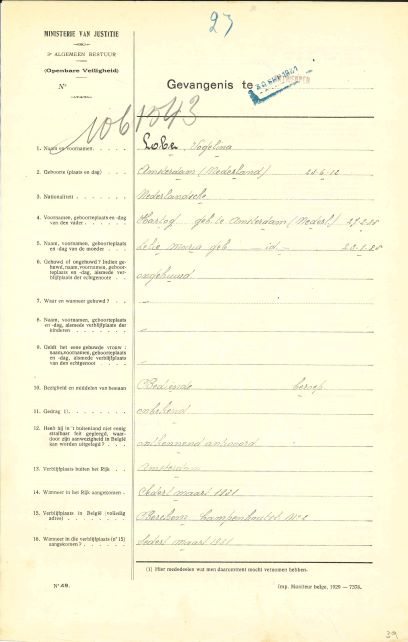 23
MINISTERIE VAN JUSTITIE
3e ALGEMEEN BESTUUR
(Openbare Veiligheid)
N°
Gevangenis te
1061043
1. Naam en voornamen. Vogelina
2. Geboorte (plaats en dag) Amsterdam (Nederland)
3. Nationaliteit Nederlandsche
4. Voornamen, geboorteplaats en -dag van den vader. Hartog geb. te Amsterdam (Nederl.)
5. Naam, voornamen, geboorteplaats en -dag van de moeder. Maria geb. — id —
6. Gehuwd of ongehuwd? Indien gehuwd, naam, voornamen, geboorteplaats en -dag, alsmede verblijfplaats der echtgenoote ongehuwd
7. Waar en wanneer gehuwd? —
8. Naam, voornamen, geboorteplaats en -dag, alsmede verblijfplaats der kinderen —
9. Geldt het eene gehuwde vrouw: naam, voornamen, geboorteplaats en -dag, alsmede verblijfplaats van den echtgenoot —
10. Bezigheid en middelen van bestaan Bediende beroep
11. Gedrag 1) onbekend
12. Heeft hij in 't buitenland niet eenig strafbaar feit gepleegd, waardoor zijn aanwezigheid in België kan worden uitgelegd? ontkennend antwoord
13. Verblijfplaats buiten het Rijk Amsterdam
14. Wanneer in het Rijk aangekomen Sedert maart 1931
15. Verblijfplaats in België (volledig adres) Berchem
16. Wanneer in die verblijfplaats (n° 15) aangekomen? Sedert maart 1931
(1) Hier mededeelen wat men daaromtrent mocht vernomen hebben.
N° 49.
Imp. Moniteur belge, 1929 — 7376.